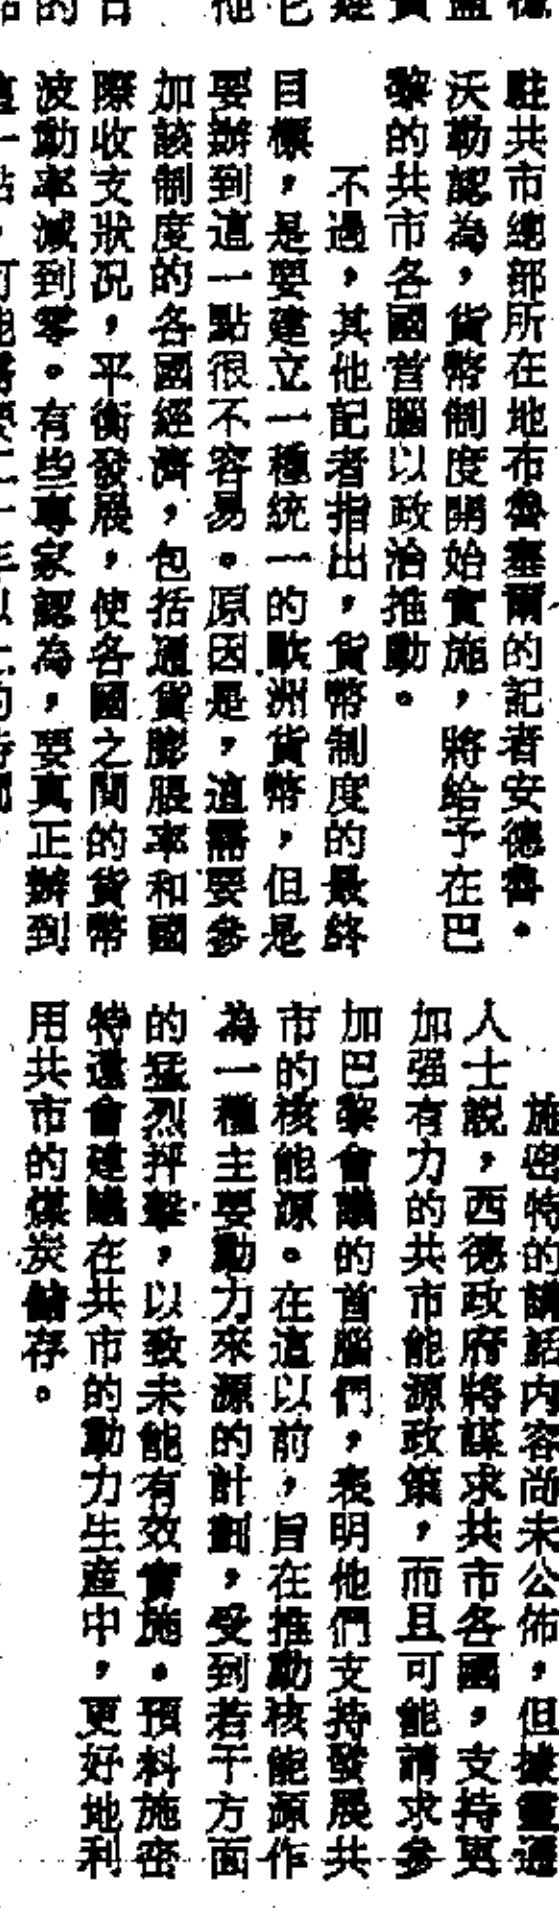 駐共市總部所在地布魯塞爾的記者安德魯·
沃勒認為，貨幣制度開始實施，將給予在巴
黎的共市各國首腦以政治推動。
不過，其他記者指出，貨幣制度的最終
目標，是要建立一種統一的歐洲貨幣，但是
要辦到這一點很不容易。原因是，這需要參
加該制度的各國經濟，包括通貨膨脹率和國
際收支狀況，平衡發展，使各國之間的貨幣
波動率減到零。有些專家認為，要真正辦到
施密特的講話內容尚未公佈，但據靈通
人士說，西德政府將謀求共市各國，支持更
加强有力的共市能源政策，而且可能請求參
加巴黎會議的首腦們，表明他們支持發展共
市的核能源。在這以前，旨在推動核能源作
為一種主要動力來源的計劃，受到若干方面
的猛烈抨擊，以致未能有效實施。預料施密
特還會建議在共市的動力生產中，更好地利
用共市的煤炭儲存。